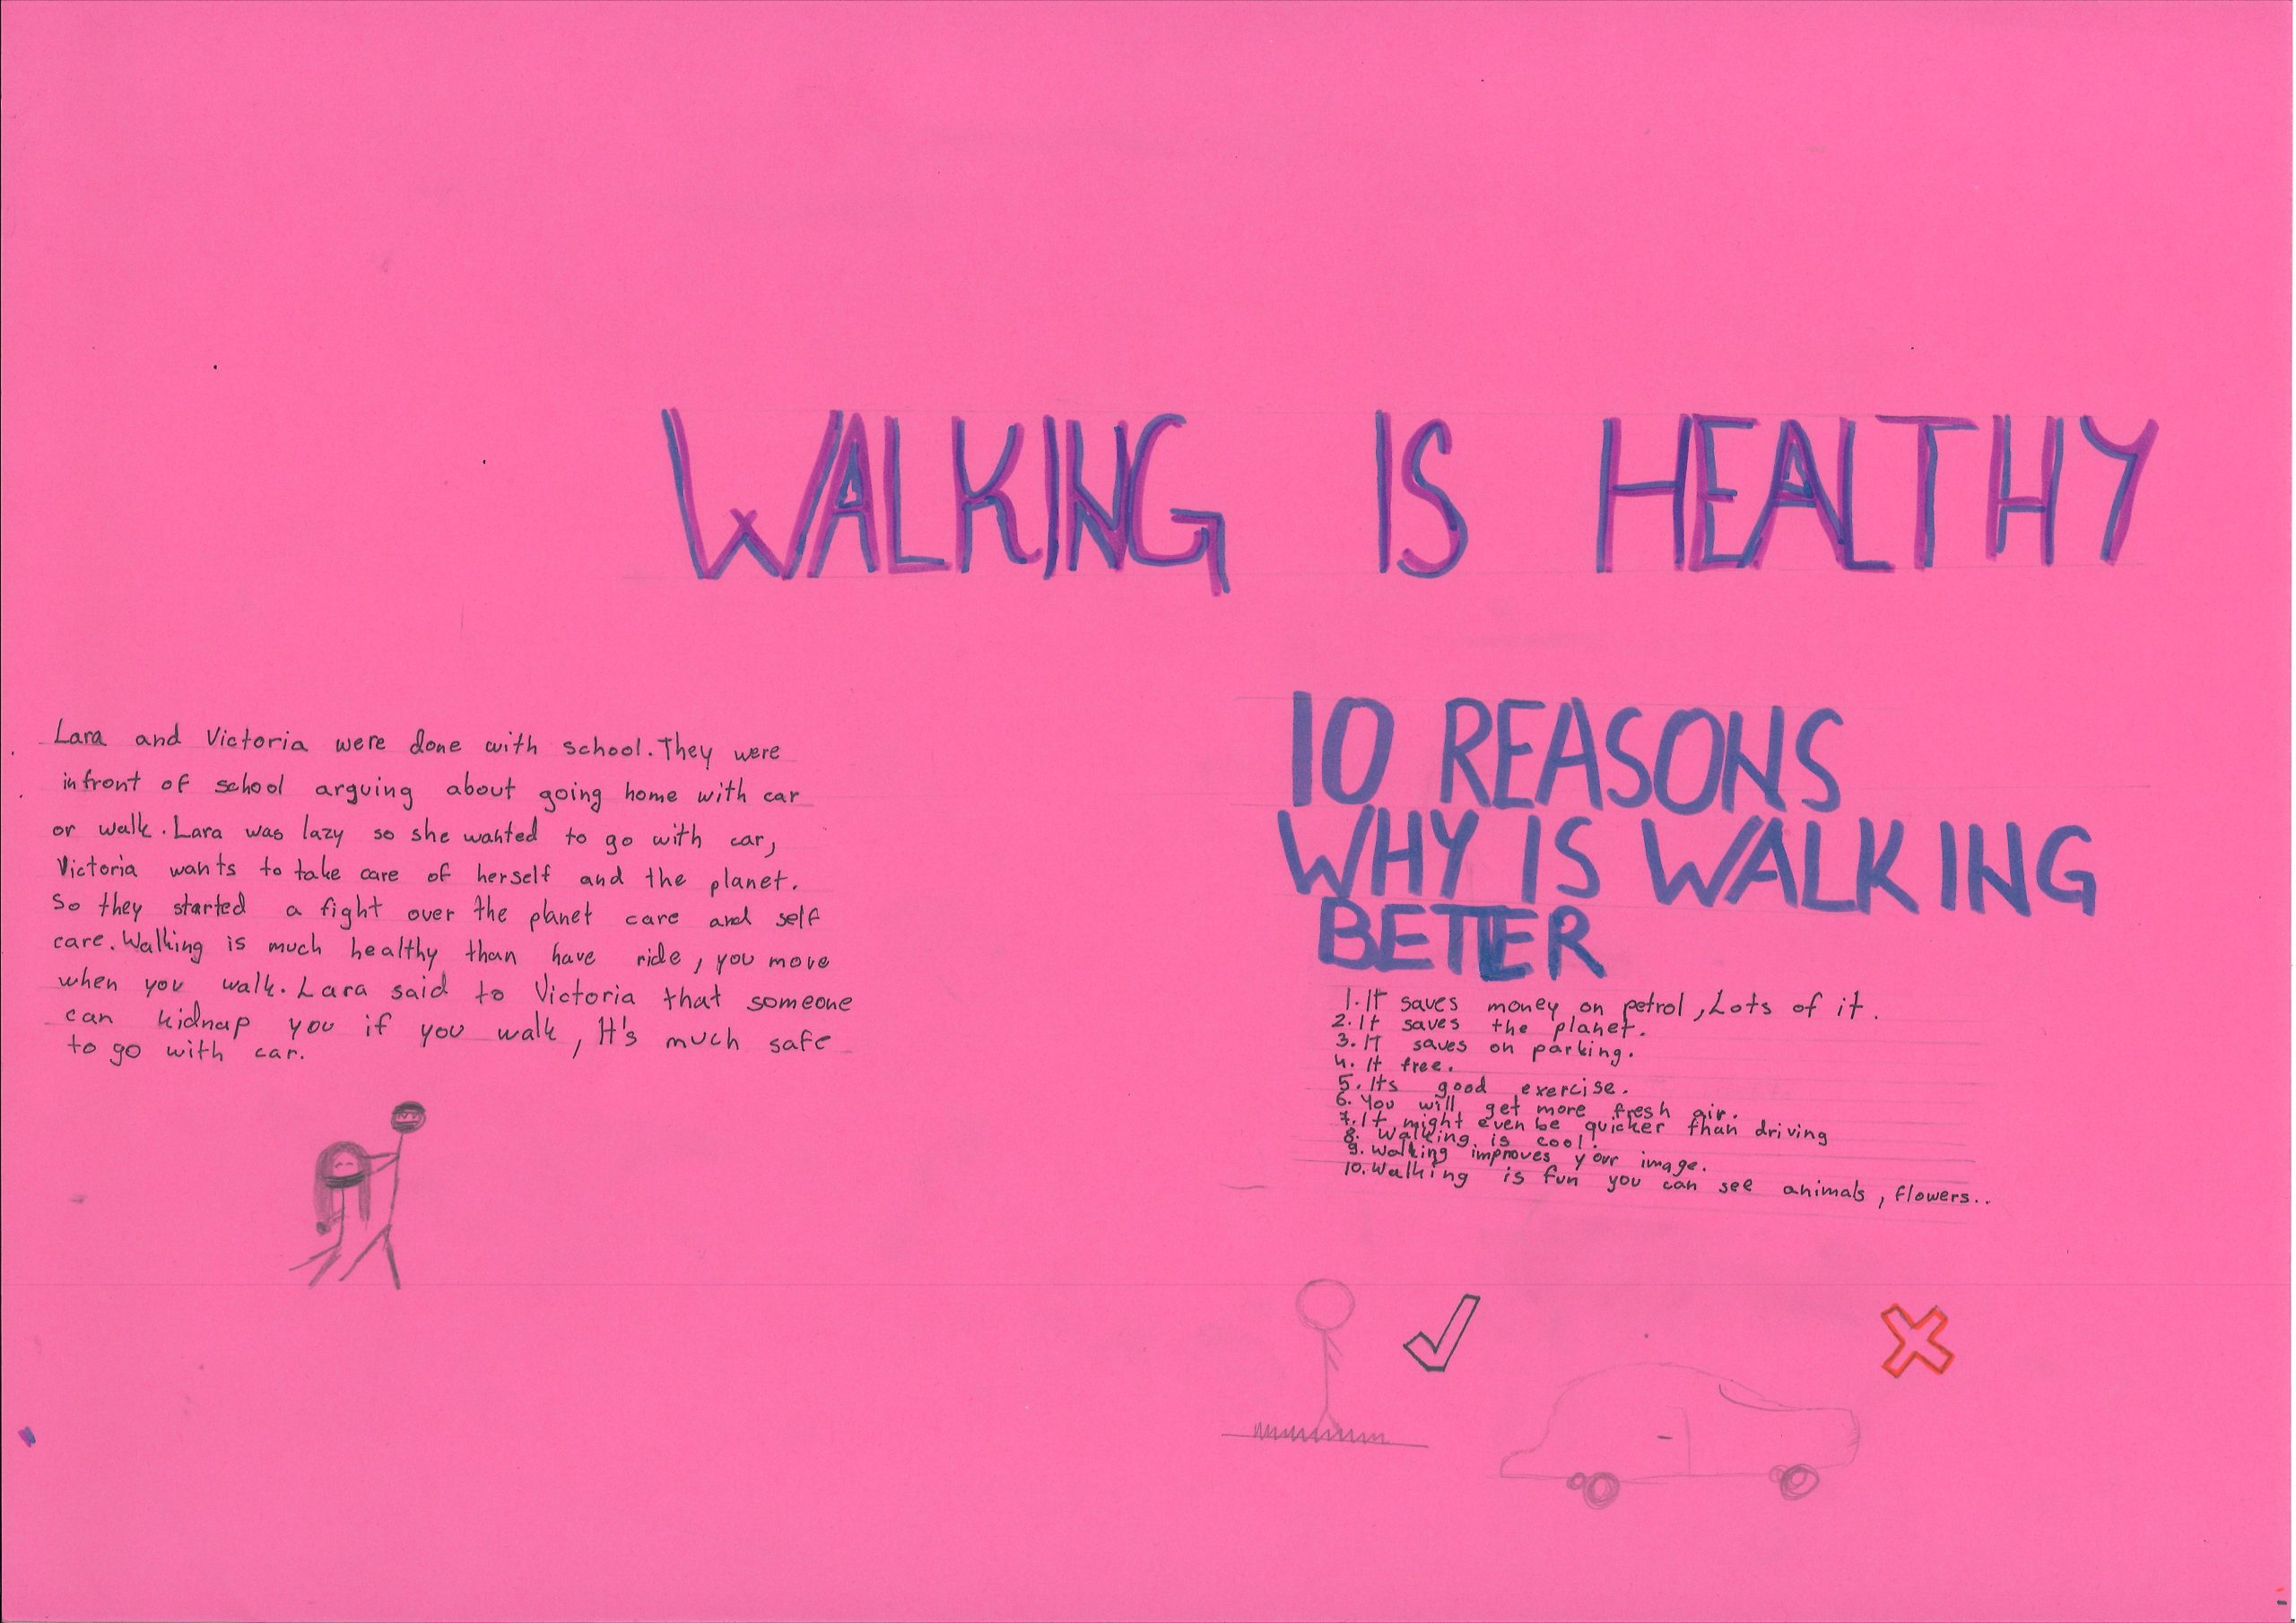 WALKING IS HEALTHY
Lara and Victoria were done with school. They were
infront of school arguing about going home with car
or walk. Lara was lazy so she wanted to go with car,
Victoria wants to take care of herself and the planet.
So they started a fight over the planet care and self
care. Walking is much healthy than have ride, you move
when you walk. Lara said to Victoria that someone
can kidnap you if you walk, It's much safe
to go with car.
10 REASONS
WHY IS WALKING
BETTER
1. It saves money on petrol, Lots of it.
2. It saves the planet.
3. IT saves on parking.
4. It free.
5. Its good exercise.
6. You will get more fresh air.
7. It might even be quicker than driving
8. Walking is cool.
9. Walking improves your image.
10. Walking is fun you can see animals, flowers..